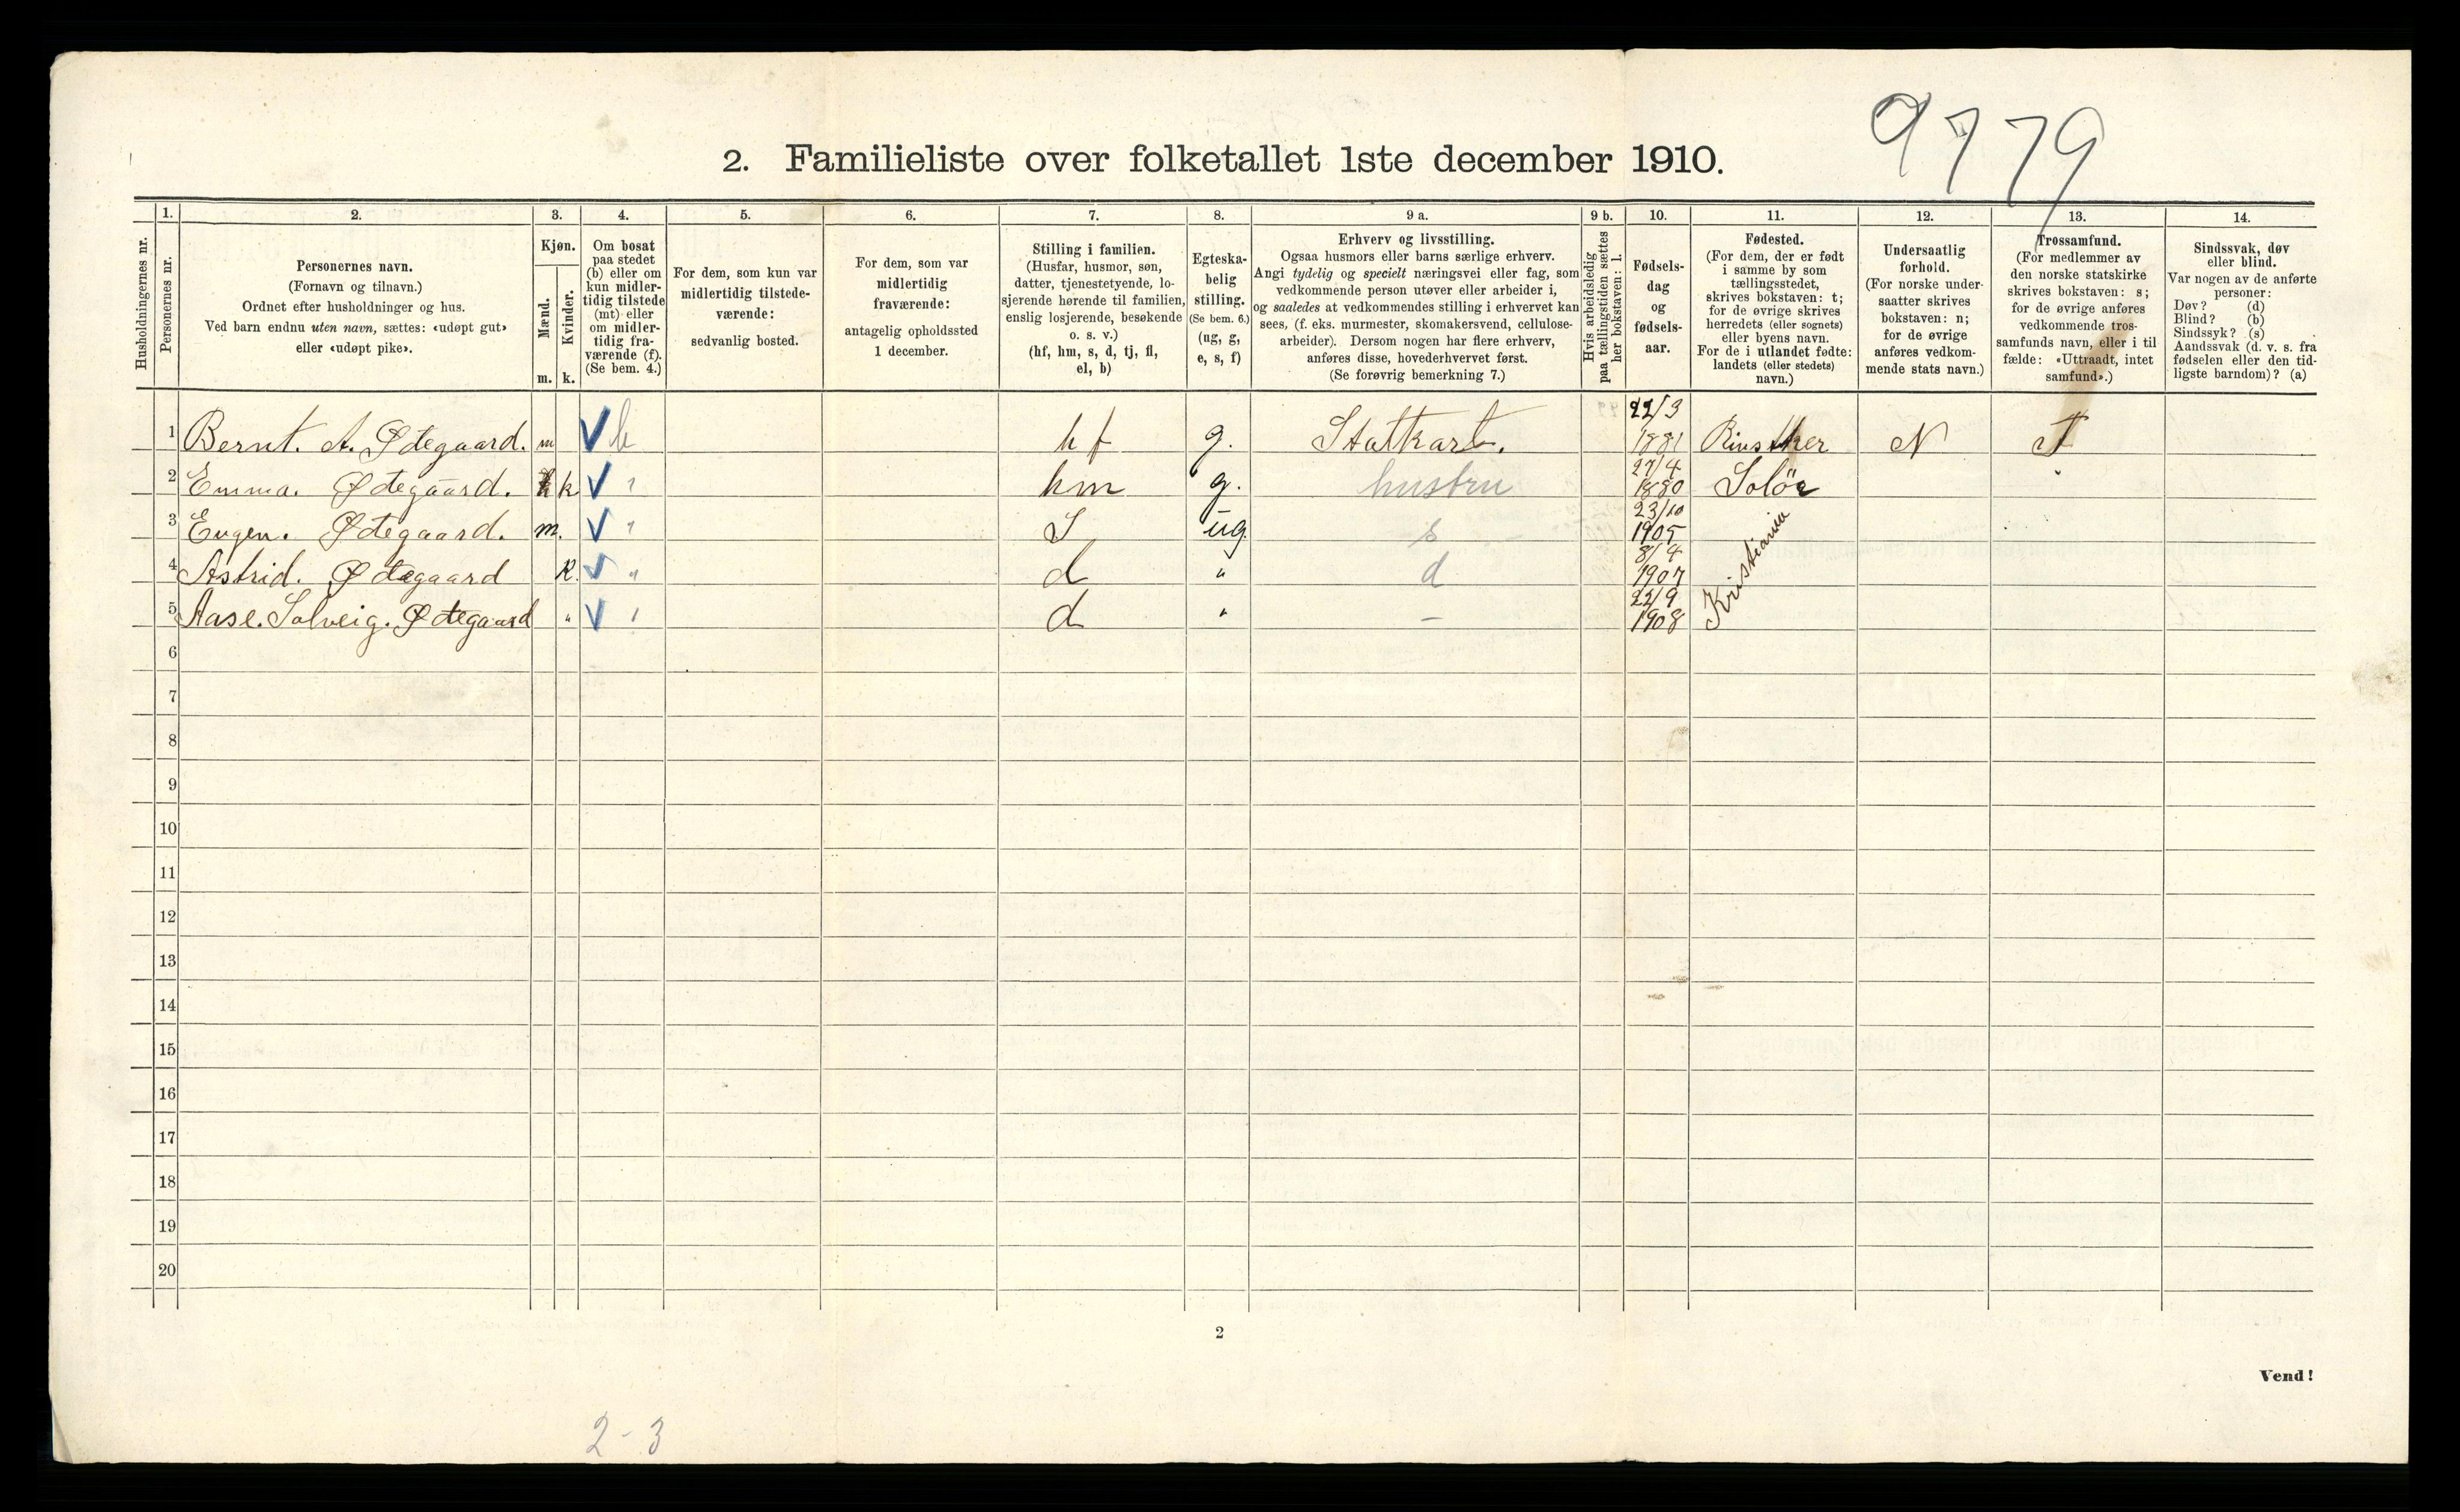 9779
2. Familieliste over folketallet 1ste december 1910.
Husholdningernes nr.
1.
Personernes nr.
2.
Personernes navn.
(Fornavn og tilnavn.)
Ordnet efter husholdninger og hus.
Ved barn endnu uten navn, sættes: «udøpt gut»
eller «udøpt pike».
3.
Kjøn.
Mænd.
m.
Kvinder.
k.
4.
Om bosat
paa stedet
(b) eller om
kun midler-
tidig tilstede
(mt) eller
om midler-
tidig fra-
værende (f).
(Se bem. 4.)
5.
For dem, som kun var
midlertidig tilstede-
værende:
sedvanlig bosted.
6.
For dem, som var
midlertidig
fraværende:
antagelig opholdssted
1 december.
7.
Stilling i familien.
(Husfar, husmor, søn,
datter, tjenestetyende, lo-
sjerende hørende til familien,
enslig losjerende, besøkende
o. s. v.)
(hf, hm, s, d, tj, fl,
el, b)
8.
Egteska-
belig
stilling.
(Se bem. 6.)
(ug, g,
e, s, f)
9 a.
Erhverv og livsstilling.
Ogsaa husmors eller barns særlige erhverv.
Angi tydelig og specielt næringsvei eller fag, som
vedkommende person utøver eller arbeider i,
og saaledes at vedkommendes stilling i erhvervet kan
sees, (f. eks. murmester, skomakersvend, cellulose-
arbeider). Dersom nogen har flere erhverv,
anføres disse, hovederhvervet først.
(Se forøvrig bemerkning 7.)
9 b.
Hvis arbeidsledig
paa tællingstiden sættes
her bokstaven: l.
10.
Fødsels-
dag
og
fødsels-
aar.
11.
Fødested.
(For dem, der er født
i samme by som
tællingsstedet,
skrives bokstaven: t;
for de øvrige skrives
herredets (eller sognets)
eller byens navn.
For de i utlandet fødte:
landets (eller stedets)
navn.)
12.
Undersaatlig
forhold.
(For norske under-
saatter skrives
bokstaven: n;
for de øvrige
anføres vedkom-
mende stats navn.)
13.
Trossamfund.
(For medlemmer av
den norske statskirke
skrives bokstaven: s;
for de øvrige anføres
vedkommende tros-
samfunds navn, eller i til
fælde: «Uttraadt, intet
samfund».)
14.
Sindssvak, døv
eller blind.
Var nogen av de anførte
personer:
Døv? (d)
Blind? (b)
Sindssyk? (s)
Aandssvak (d. v. s. fra
fødselen eller den tid-
ligste barndom)? (a)
1 Bernt. A. Ødegaard. m b hf g. 22/3 1881 N
2 Emma. Ødegaard. k " hm g. hustru 27/4 1880 Solör "
3 Eugen. Ødegaard. m. " S ug s 23/10 1905 Kristiania
4 Astrid. Ødegaard K. " d " d 8/4 1907
5 Aase. Solveig. Ødegaard " " d " – 22/9 1908
6
7
8
9
10
11
12
13
14
15
16
17
18
19
20
2
Vend!
2-3